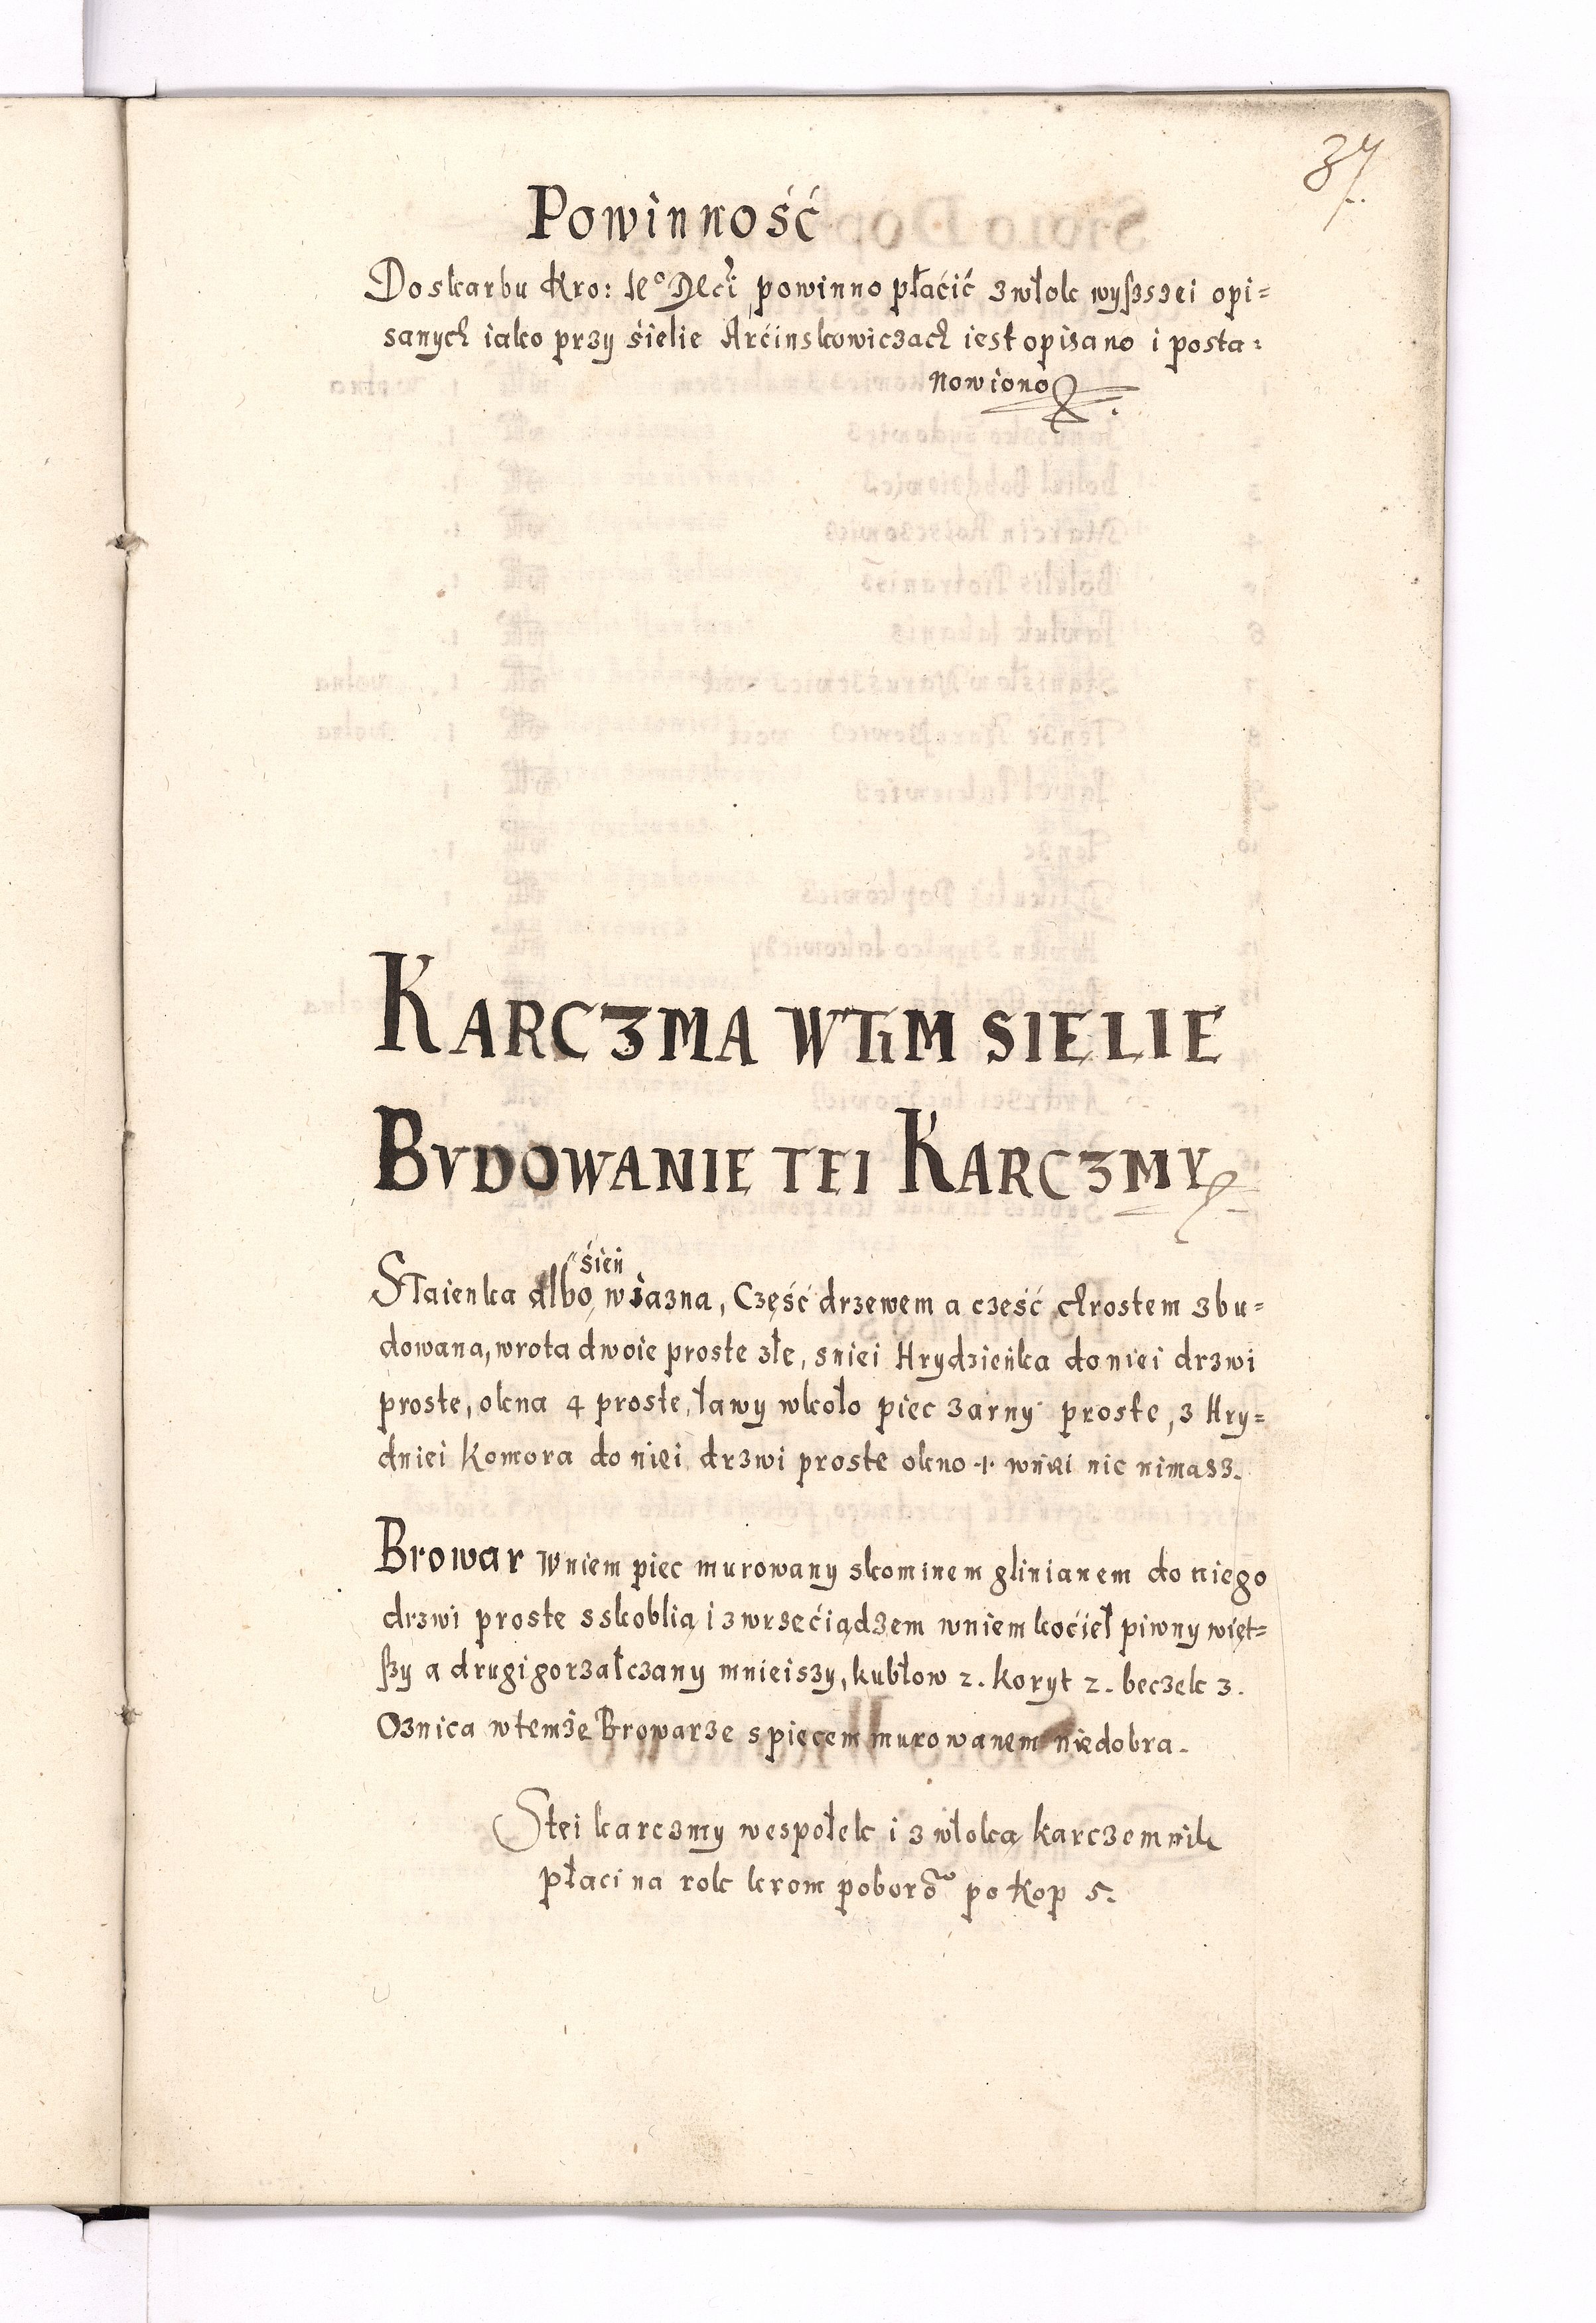 37.
Powinność
Do skarbu Kro: Ie° Mści powinno płacić z włok wyszszei opi=
sanych iako przy sielie Arcinskowiczach iest opisano i posta:
nowiono
KARCZMA W TIM SIELIE
BVDOWANIE TEI KARCZMY
sień
Staienka albo wiazna, Część drzewem a cześć chrostem zbu=
dowana, wrota dwoie proste złe, sniei Hrydzieńka do niei drzwi
proste, okna 4 proste, ławy wkoło piec zarny proste, z Hry=
dniei Komora do niei drzwi proste okno ·1· wniei nic nimasz.
Browar wniem piec murowany skominem glinianem do niego
drzwi proste sskoblią i zwrzeciądzem wniem kocieł piwny więt=
szy a drugi gorzałczany mnieiszy, kubłow 2. koryt 2. beczek 3.
Oznica wtemże Browarze spiecem murowanem niedobra.
Stei karczmy wespołek i z włoką karczemnik
płaci na rok krom poborō po kop 5.